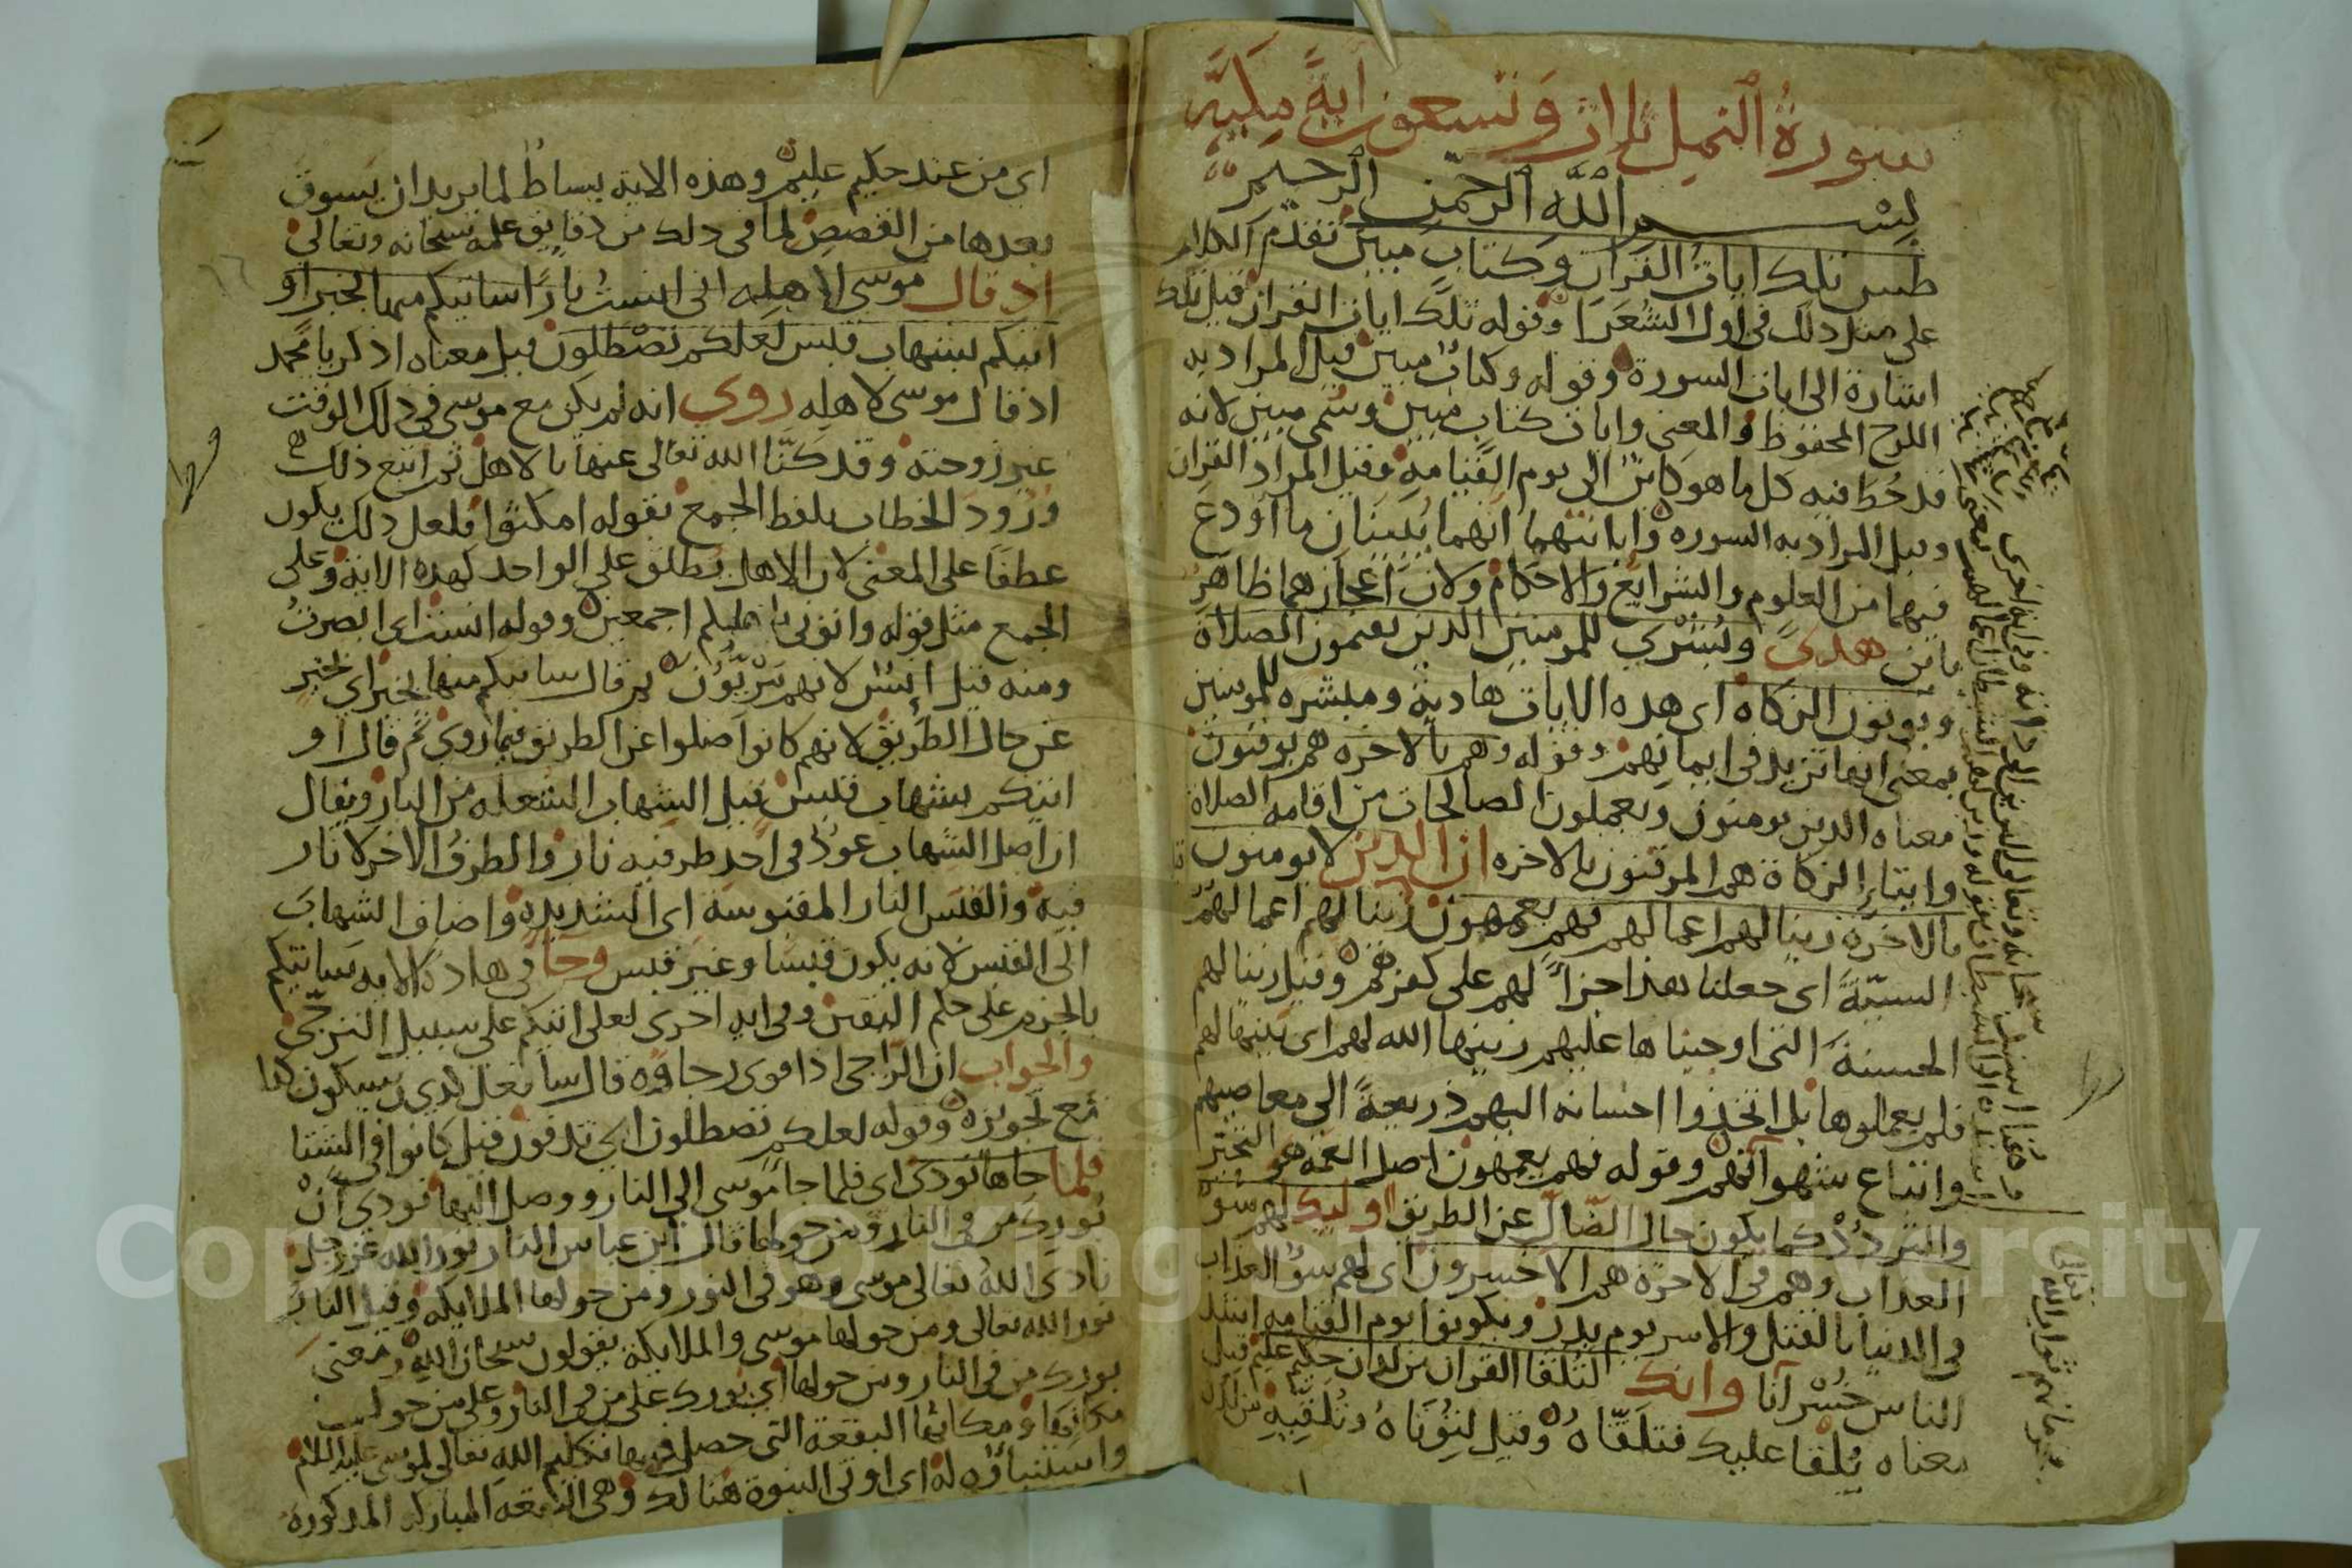 سورة النمل ثلاث وتسعون آية مكية
بسم الله الرحمن الرحيم
طس تلك ايات القران وكتاب مبين تقدم الكلام
على مثل ذلك في اول الشعرا وقوله تلك ايات القران قيل تلك
اشارة الى ايات السورة وقوله وكتاب مبين قيل المراد به
اللوح المحفوظ والمعنى وايات كتاب مبين وسمي مبين لانه
قد خط فيه كل ما هو كاين الى يوم القيامة وقيل المراد القران
وقيل المراد به السوره وابانتهما انهما يبينان ما اودع
فيهما من العلوم والشرايع والاحكام ولان اعجازهما ظاهر
باين هدى وبشرى للمومنين الذين يقيمون الصلاة
ويوتون الزكاة اى هذه الايات هادية ومبشره للمومنين
بمعنى انها تزيد في ايمانهم وقوله وهم بالاخره هم يوقنون
معناه الذين يومنون ويعملون الصالحات من اقامه الصلاة
وايتاء الزكاة هم الموقنون بالاخره ان الذين لا يومنون
بالاخرة زينا لهم اعمالهم فهم يعمهون زينا لهم اعمالهم
السيئة اى جعلنا هذا جزاء لهم على كفرهم وقيل زينا لهم
الحسنة التى اوجبناها عليهم زينها الله لهم اى بينها لهم
فلم يعملوها بل اتخذوا احسانه اليهم ذريعة الى معاصيهم
واتباع شهواتهم وقوله فهم يعمهون اصل العمه هو التحير
والتردد كما يكون حال الضال عن الطريق اوليك لهم سوء
العذاب وهم في الاخرة هم الاخسرون اى لهم سوء العذاب
في الدنيا بالقتل والاسر يوم بدر ويكونوا يوم القيامه اشد
الناس خسرانا وانك لتلقا القران من لدن حكيم عليم قيل
معناه يلقا عليك فتلقاه وقيل لتوتاه وتلقيه من لدن
اى من عند حكيم عليم وهذه الاية بساط لما يريد ان يسوق
بعدها من القصص لما في ذلك من دقايق علمه سبحانه وتعالى
اذ قال موسى لاهله انى انست نارا ساتيكم منها بخبر او
اتيكم بشهاب قبس لعلكم تصطلون قيل معناه اذكر يا محمد
اذ قال موسى لاهله روى انه لم يكن مع موسى في ذلك الوقت
غير زوجته وقد كنا الله تعالى عنها بالاهل ثم اتبع ذلك
ورود الخطاب بلفظ الجمع بقوله امكثوا فلعل ذلك يكون
عطفا على المعنى لان الاهل يطلق على الواحد كهذه الاية وعلى
الجمع مثل قوله واتونى باهليكم اجمعين وقوله انست اى ابصرت
ومنه قيل انس لانهم مرييون ثم قال ساتيكم منها بخبر اى بخبر
عن حال الطريق لانهم كانوا ضلوا عن الطريق فيما روي ثم قال او
اتيكم بشهاب قبس قيل الشهاب الشعله من النار ويقال
ان اصل الشهاب عود في احد طرفيه نار والطرف الاخر لا نار
فيه والقبس النار المقبوسة اى الشديده واضاف الشهاب
الى القبس لانه يكون قبسا وغير قبس وجا في هذه الايه ساتيكم
بالجزم على حكم اليقين وفي ايه اخرى لعلى اتيكم على سبيل الترجى
والجواب ان الراجى اذا قوى رجاوه قال سافعل كذى وسيكون كذا
مع تجويزه وقوله لعلكم تصطلون اى تدفون قيل كانوا في الشتا
فلما جاها نودى اى فلما جا موسى الى النار ووصل اليها نودى ان
بورك من في النار ومن حولها قال ابن عباس النار نور الله عز وجل
نادى الله تعالى موسى وهو في النور ومن حولها الملايكة وقيل النار
نور الله تعالى ومن حولها موسى والملايكة يقولون سبحان الله ومعنى
بورك من في النار ومن حولها اى بورك على من في النار وعلى من حول
مكانها ومكانها البقعة التى حصل فيها تكليم الله تعالى لموسى عليه السلام
واستنباؤه له اى اوتى النبوة هنالك وهى البقعه المباركه المذكوره
Copyright © King Saud University